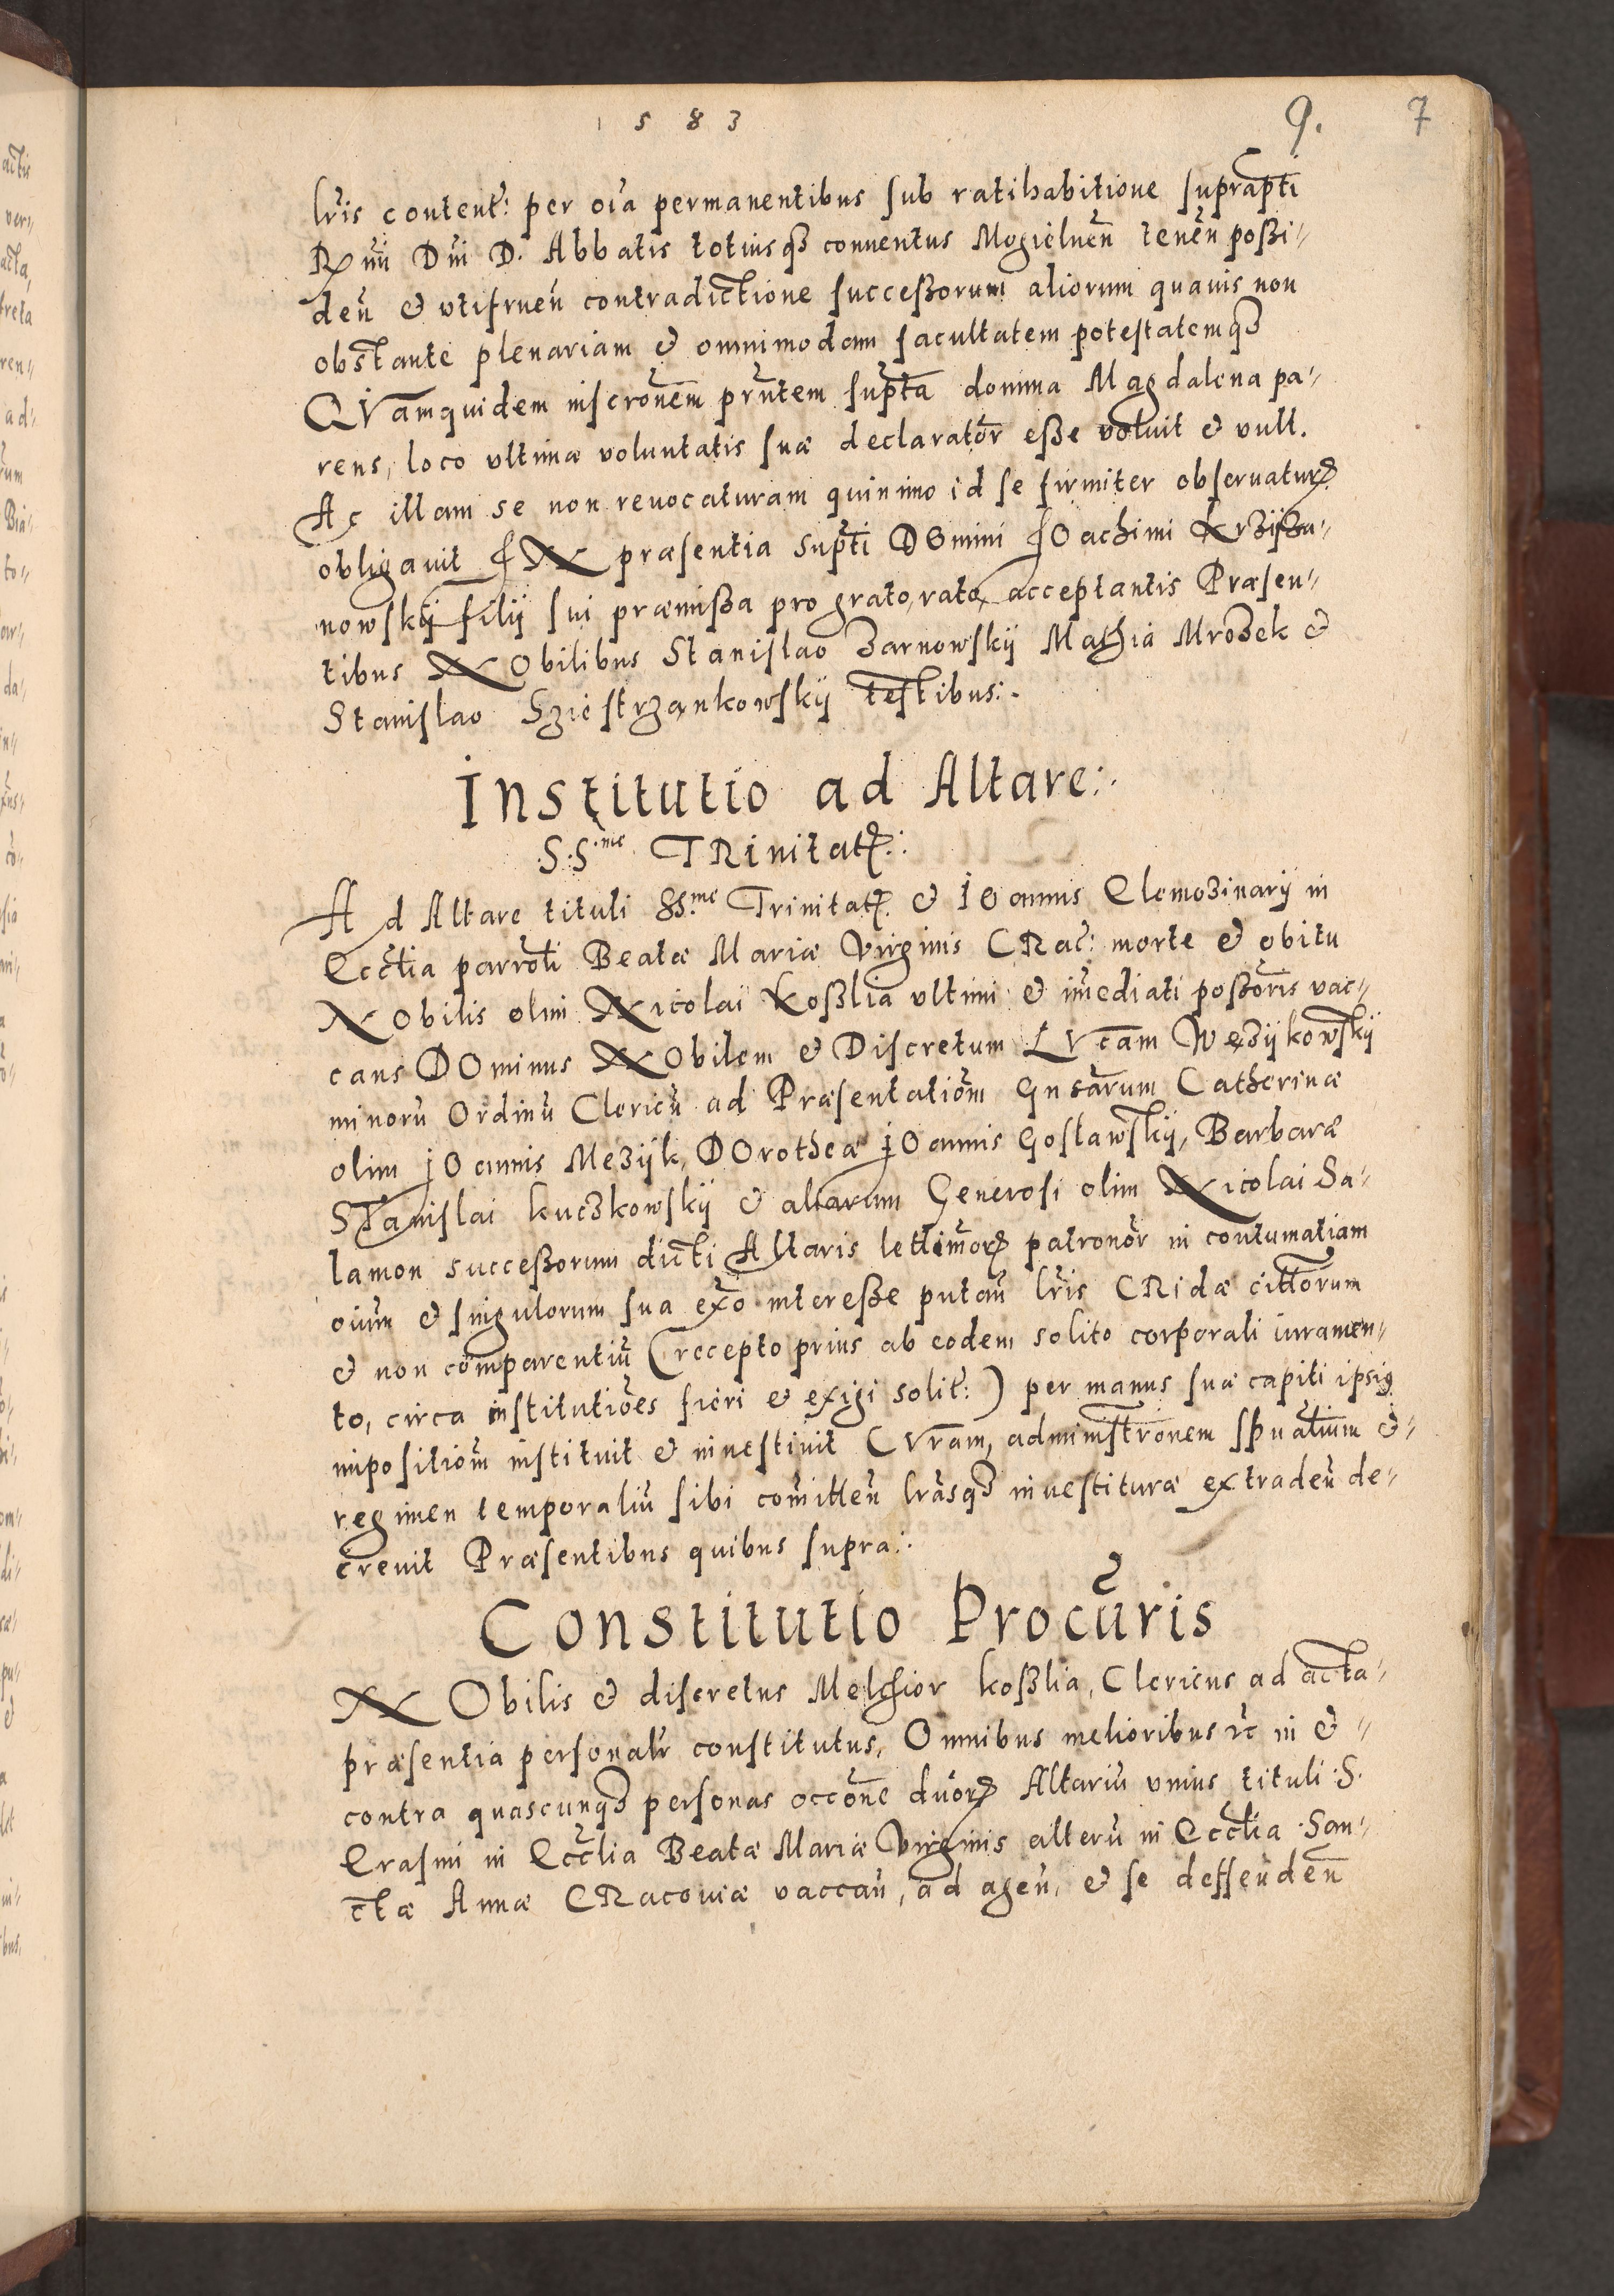 1583 9. 7
lr̃is content: per oĩa permanentibus sub ratihabitione suprapti
Rx̃mi Dñi D. Abbatis totiusq3 conuentus Mogielneñ teneñ possi-
deñ & vtifrueñ contradictione successorum aliorum quauis non
obstante plenariam & omnimodam facultatem potestatemq3
QVamquidem inscr̃onem pñtem supt̃a domina Magdalena pa-
rens, loco vltimæ voluntatis suæ declaratõr esse voluit & vult.
Ac illam se non reuocaturam quinimo id se firmiter obseruatur
obligauit IN præsentia supt̃i DOmini IOachimi
nowskij filij sui præmissa pro grato, rato, acceptantis Præsen-
tibus NObilibus Stanislao Zarnowskij Mathia Mrozek &
Stanislao Sziestrzankowskij testibus:.
Institutio ad Altare:.
S:S.mæ TRinitat:
Ad Altare tituli SS.mæ Trinitat. & IOannis Elemozinarij in
Eccl̃ia parrotĩ Beatæ Mariæ Virginis CRac̃: morte & obitu
NObilis olim Nicolai Kosslia vltimi & im̃ediati possor̃is vac-
cans DOminus NObilem & Discretum LVcam Wezijkowskij
minorũ Ordinũ Clericũ ad Præsentatiõm Gñsarum Catherinæ
olim IOannis Mezijk, DOrotheæ IOannis Gosławskij, Barbaræ
Stanislai kuczkowskij & aliarum Generosi olim Nicolai Sa-
lamon successorum dicti Altaris lettimor patronõr in contumatiam
oiũm & singulorum sua ex̃o interesse putañ lr̃is CRidæ cittorum
& non comparentiũ (recepto prius ab eodem solito corporali iuramen-
to, circa institutiões fieri & exigi solit̃:) per manus suæ capiti ipsius
impositiõm instituit & inuestiuit CVram, administrõnem sp̃ualium &-
regimen temporaliũ sibi com̃itteñ lr̃asq3 inuestituræ extradeñ de-
creuit Præsentibus quibus supra:.
Constitutio Procũris
NObilis & discretus Melchior kosslia, Clericus ad acta-
præsentia personalr̃ constitutus, Omnibus melioribus rc̃ in &-
contra quascunq3 personas occõne duor Altariũ vnius tituli .S.
Erasmi in Eccl̃ia Beatæ Mariæ Virginis alterũ in Eccl̃ia San-
ctæ Annæ CRacouiæ vaccañ, ad ageñ, & se deffendeñ